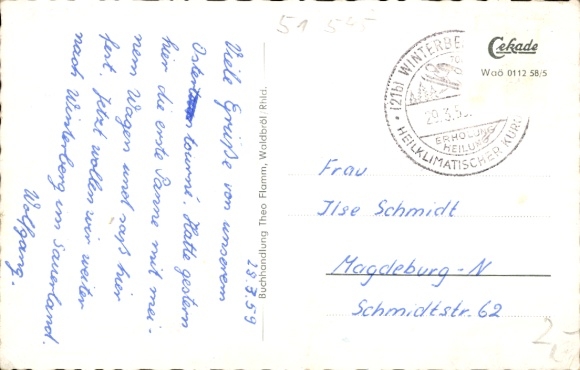 28.3.59
Viele Grüße von unserem
Ostertourné. Hatte gestern
hier die erste Panne mit mei-
nem Wagen und saß hier
fest. Jetzt wollen wir weiter
nach Winterberg im Sauerland.
Wolfgang.
Buchhandlung Theo Flamm, Waldbröl Rhld.
51 545
(21b) WINTERBE
29.3.5
ERHOLUNG
HEILUNG
HEILKLIMATISCHER KUR
Cekade
Waö 0112 58/5
Frau
Ilse Schmidt
Magdeburg-N
Schmidtstr. 62